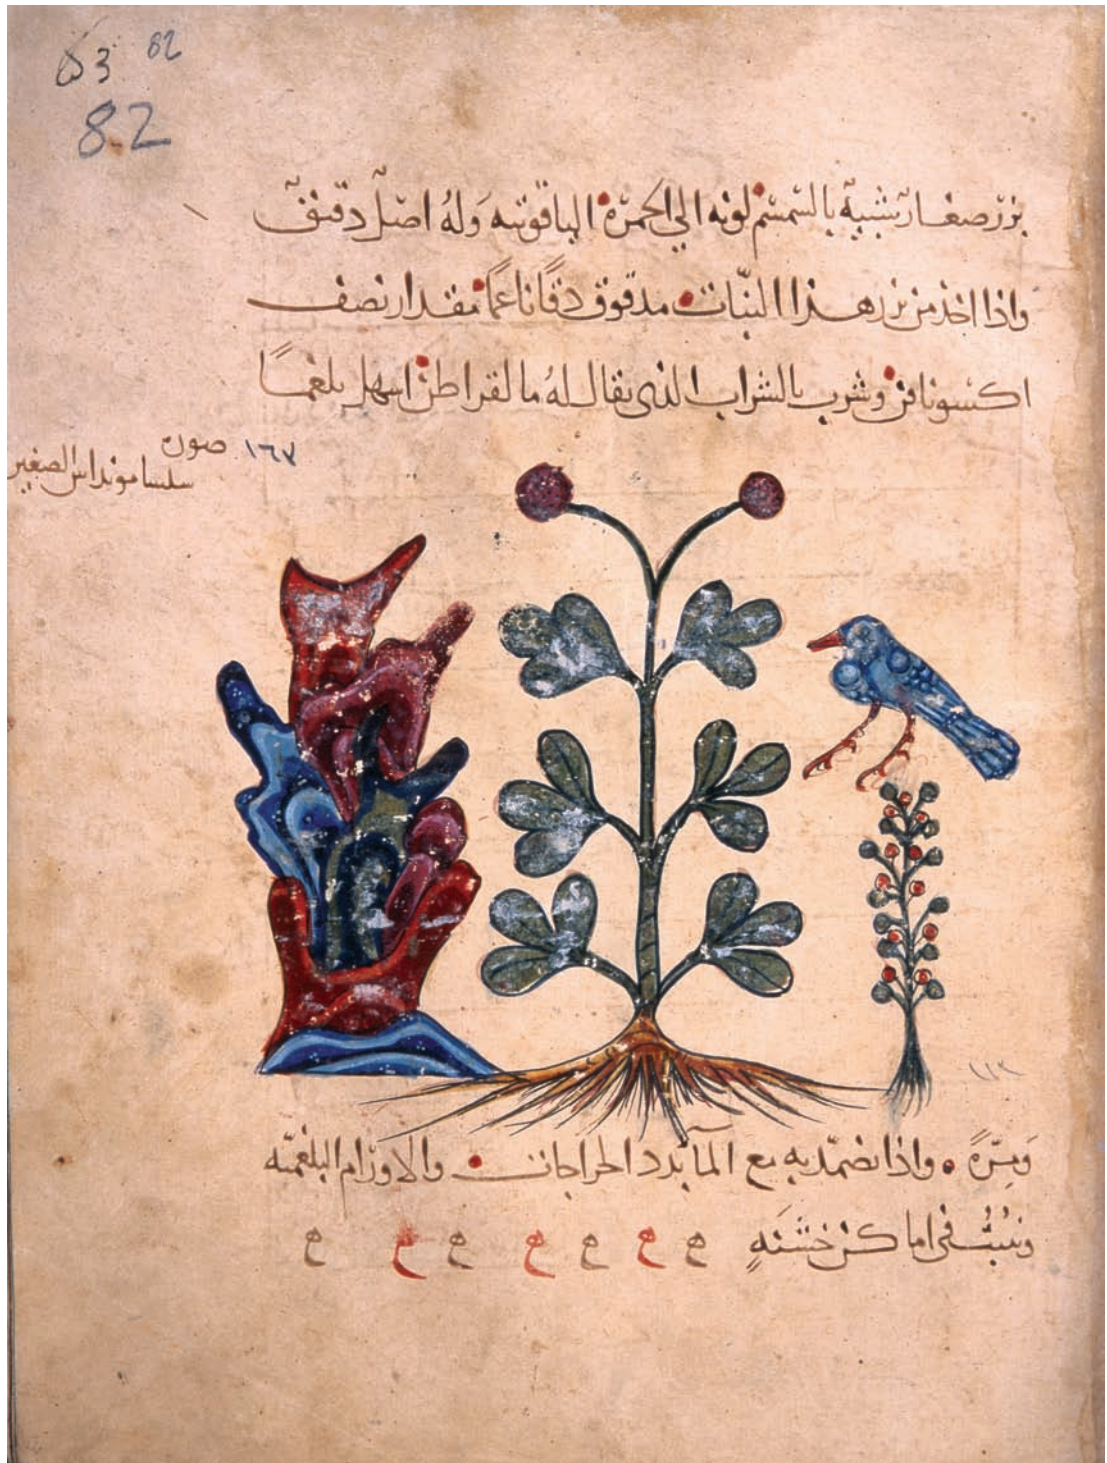 53 82
82
بزر صغار شبيه بالسمسم لونه الي الحمرة الياقوتيه وله اصل دقيق
واذا اخذ من بزر هذا النبات مدقوق دقا ناعما مقدار نصف
اكسونافن وشرب بالشراب الذي يقال له مالقراطن اسهل بلغما
١٦٧ صورة
سلسامونداس الصغير
١١٢
ومرة واذا تضمد به مع الماء بدد الخراجات والاورام البلغميه
وينبت في اماكن خشنه
ه ه ه ه ه ه ه